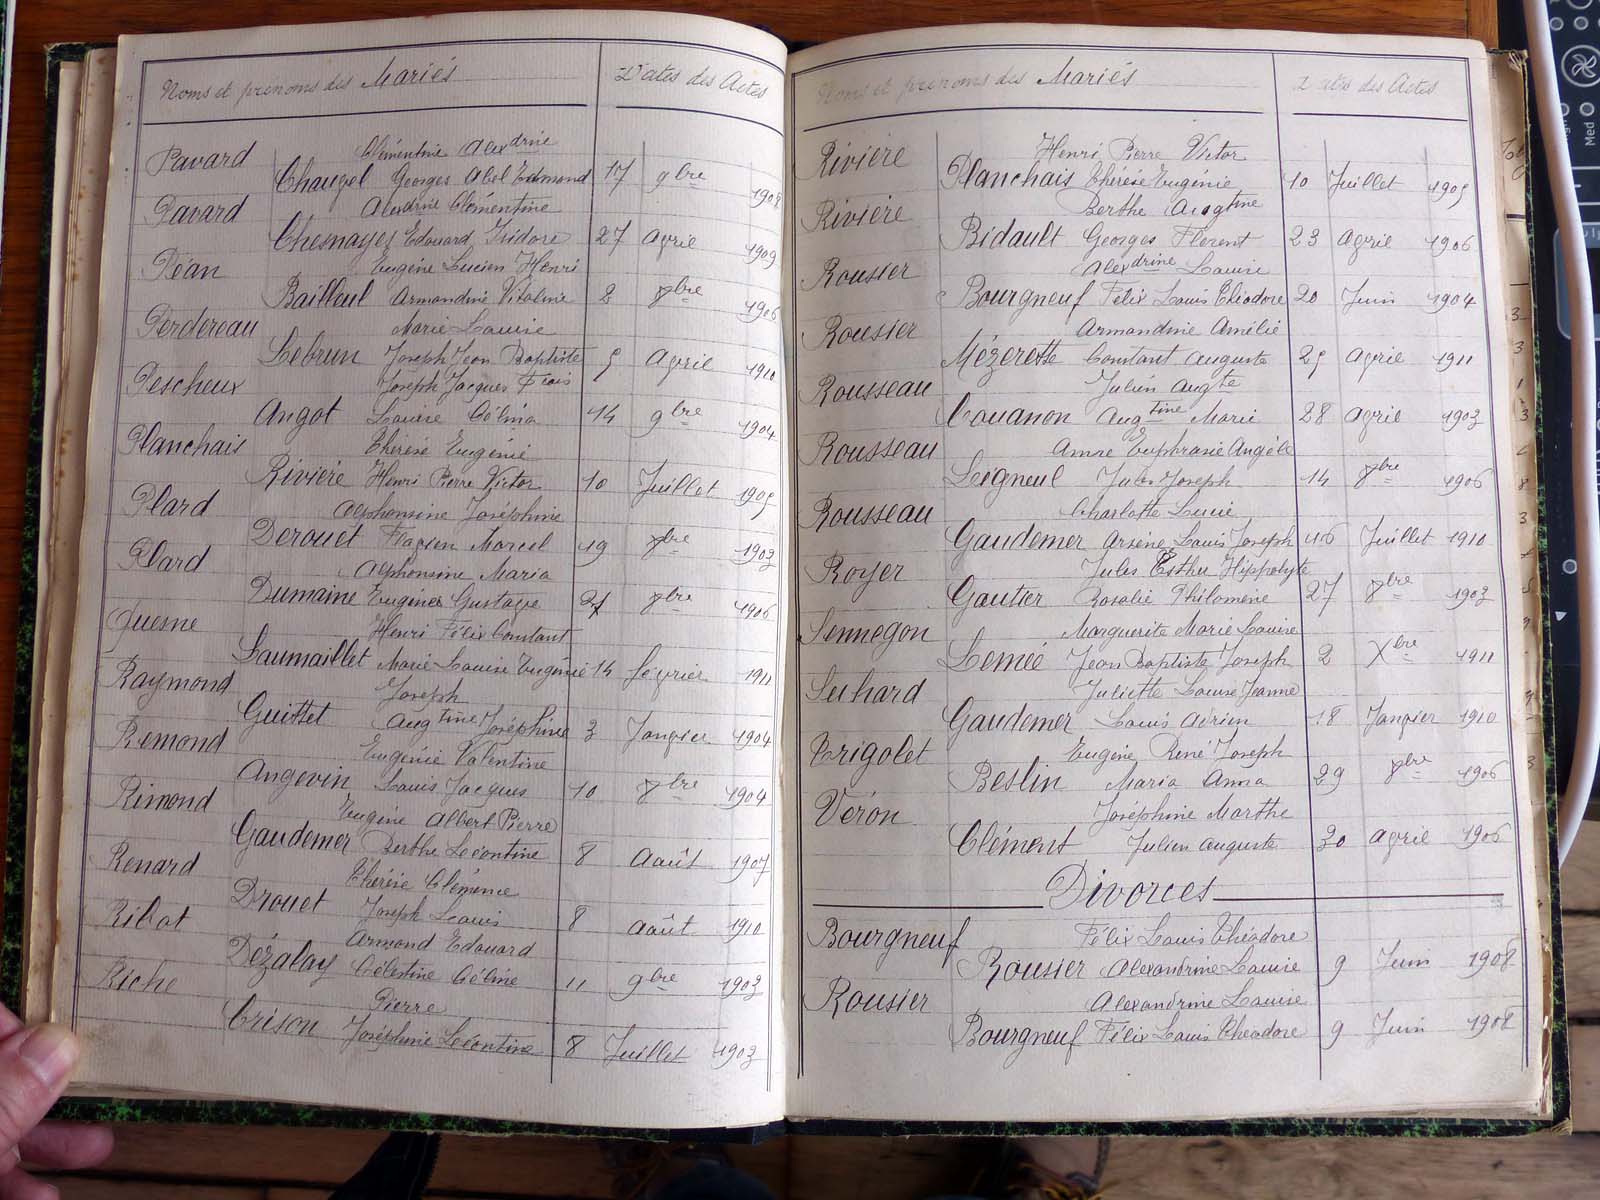 Noms et prénoms des Mariés Dates des Actes
Pavard Clémentine Alexdrine
Chauvel Georges Abel Edmond 17 9bre 1908
Pavard Alexdrine Clémentine
Chesnayes Edouard Isidore 27 Avril 1909
Péan Eugène Lucien Henri
Bailleul Armandine Vitaline 2 8bre 1906
Perdereau Marie Louise
Lebrun Joseph Jean Baptiste 5 Avril 1910
Pescheux Joseph Jacques Frçois
Angot Louise Célina 14 9bre 1904
Planchais Thérèse Eugénie
Rivière Henri Pierre Victor 10 Juillet 1905
Plard Alphonsine Joséphine
Derouet Flavien Marcel 19 8bre 1903
Plard Alphonsine Maria
Dumaine Eugène Gustave 8bre 1906
Quesne Henri Félix Constant
Laumaillet Marie Louise Eugénie 14 février 1911
Raymond Joseph
Guittet Augtine Joséphine 3 Janvier 1904
Remond Eugénie Valentine
Angevin Louis Jacques 10 8bre 1904
Rimond Eugène Albert Pierre
Gaudemer Berthe Léontine 8 Août 1907
Renard Thérèse Clémence
Drouet Joseph Louis 8 Août 1910
Ribot Armand Edouard
Dézalay Célestine Céline 11 9bre 1903
Riche Pierre
Crison Joséphine Léontine 8 Juillet 1903
Noms et prénoms des Mariés Dates des Actes
Rivière Henri Pierre Victor
Planchais Thérèse Eugénie 10 Juillet 1905
Rivière Berthe Augtine
Bidault Georges Florent 23 Avril 1906
Rousier Alexdrine Louise
Bourgneuf Félix Louis Théodore 20 Juin 1904
Rousier Armandine Amélie
Mézerette Constant Auguste 25 Avril 1911
Rousseau Julien Augte
Couanon Augtine Marie 28 Avril 1903
Rousseau Anne Euphrasie Angèle
Leigneul Jules Joseph 14 8bre 1906
Rousseau Charlotte Lucie
Gaudemer Arsène Louis Joseph 16 Juillet 1910
Royer Jules Esther Hippolyte
Gautier Rosalie Philomène 27 8bre 1903
Sennegon Marguerite Marie Louise
Lemée Jean Baptiste Joseph 2 Xbre 1911
Suhard Juliette Louise Jeanne
Gaudemer Louis Adrien 18 Janvier 1910
Trigolet Eugène René Joseph
Beslin Maria Anna 29 8bre 1906
Véron Joséphine Marthe
Clément Julien Auguste 30 Avril 1906
Divorces
Bourgneuf Félix Louis Théodore
Rousier Alexandrine Louise 9 Juin 1908
Rousier Alexandrine Louise
Bourgneuf Félix Louis Théodore 9 Juin 1908